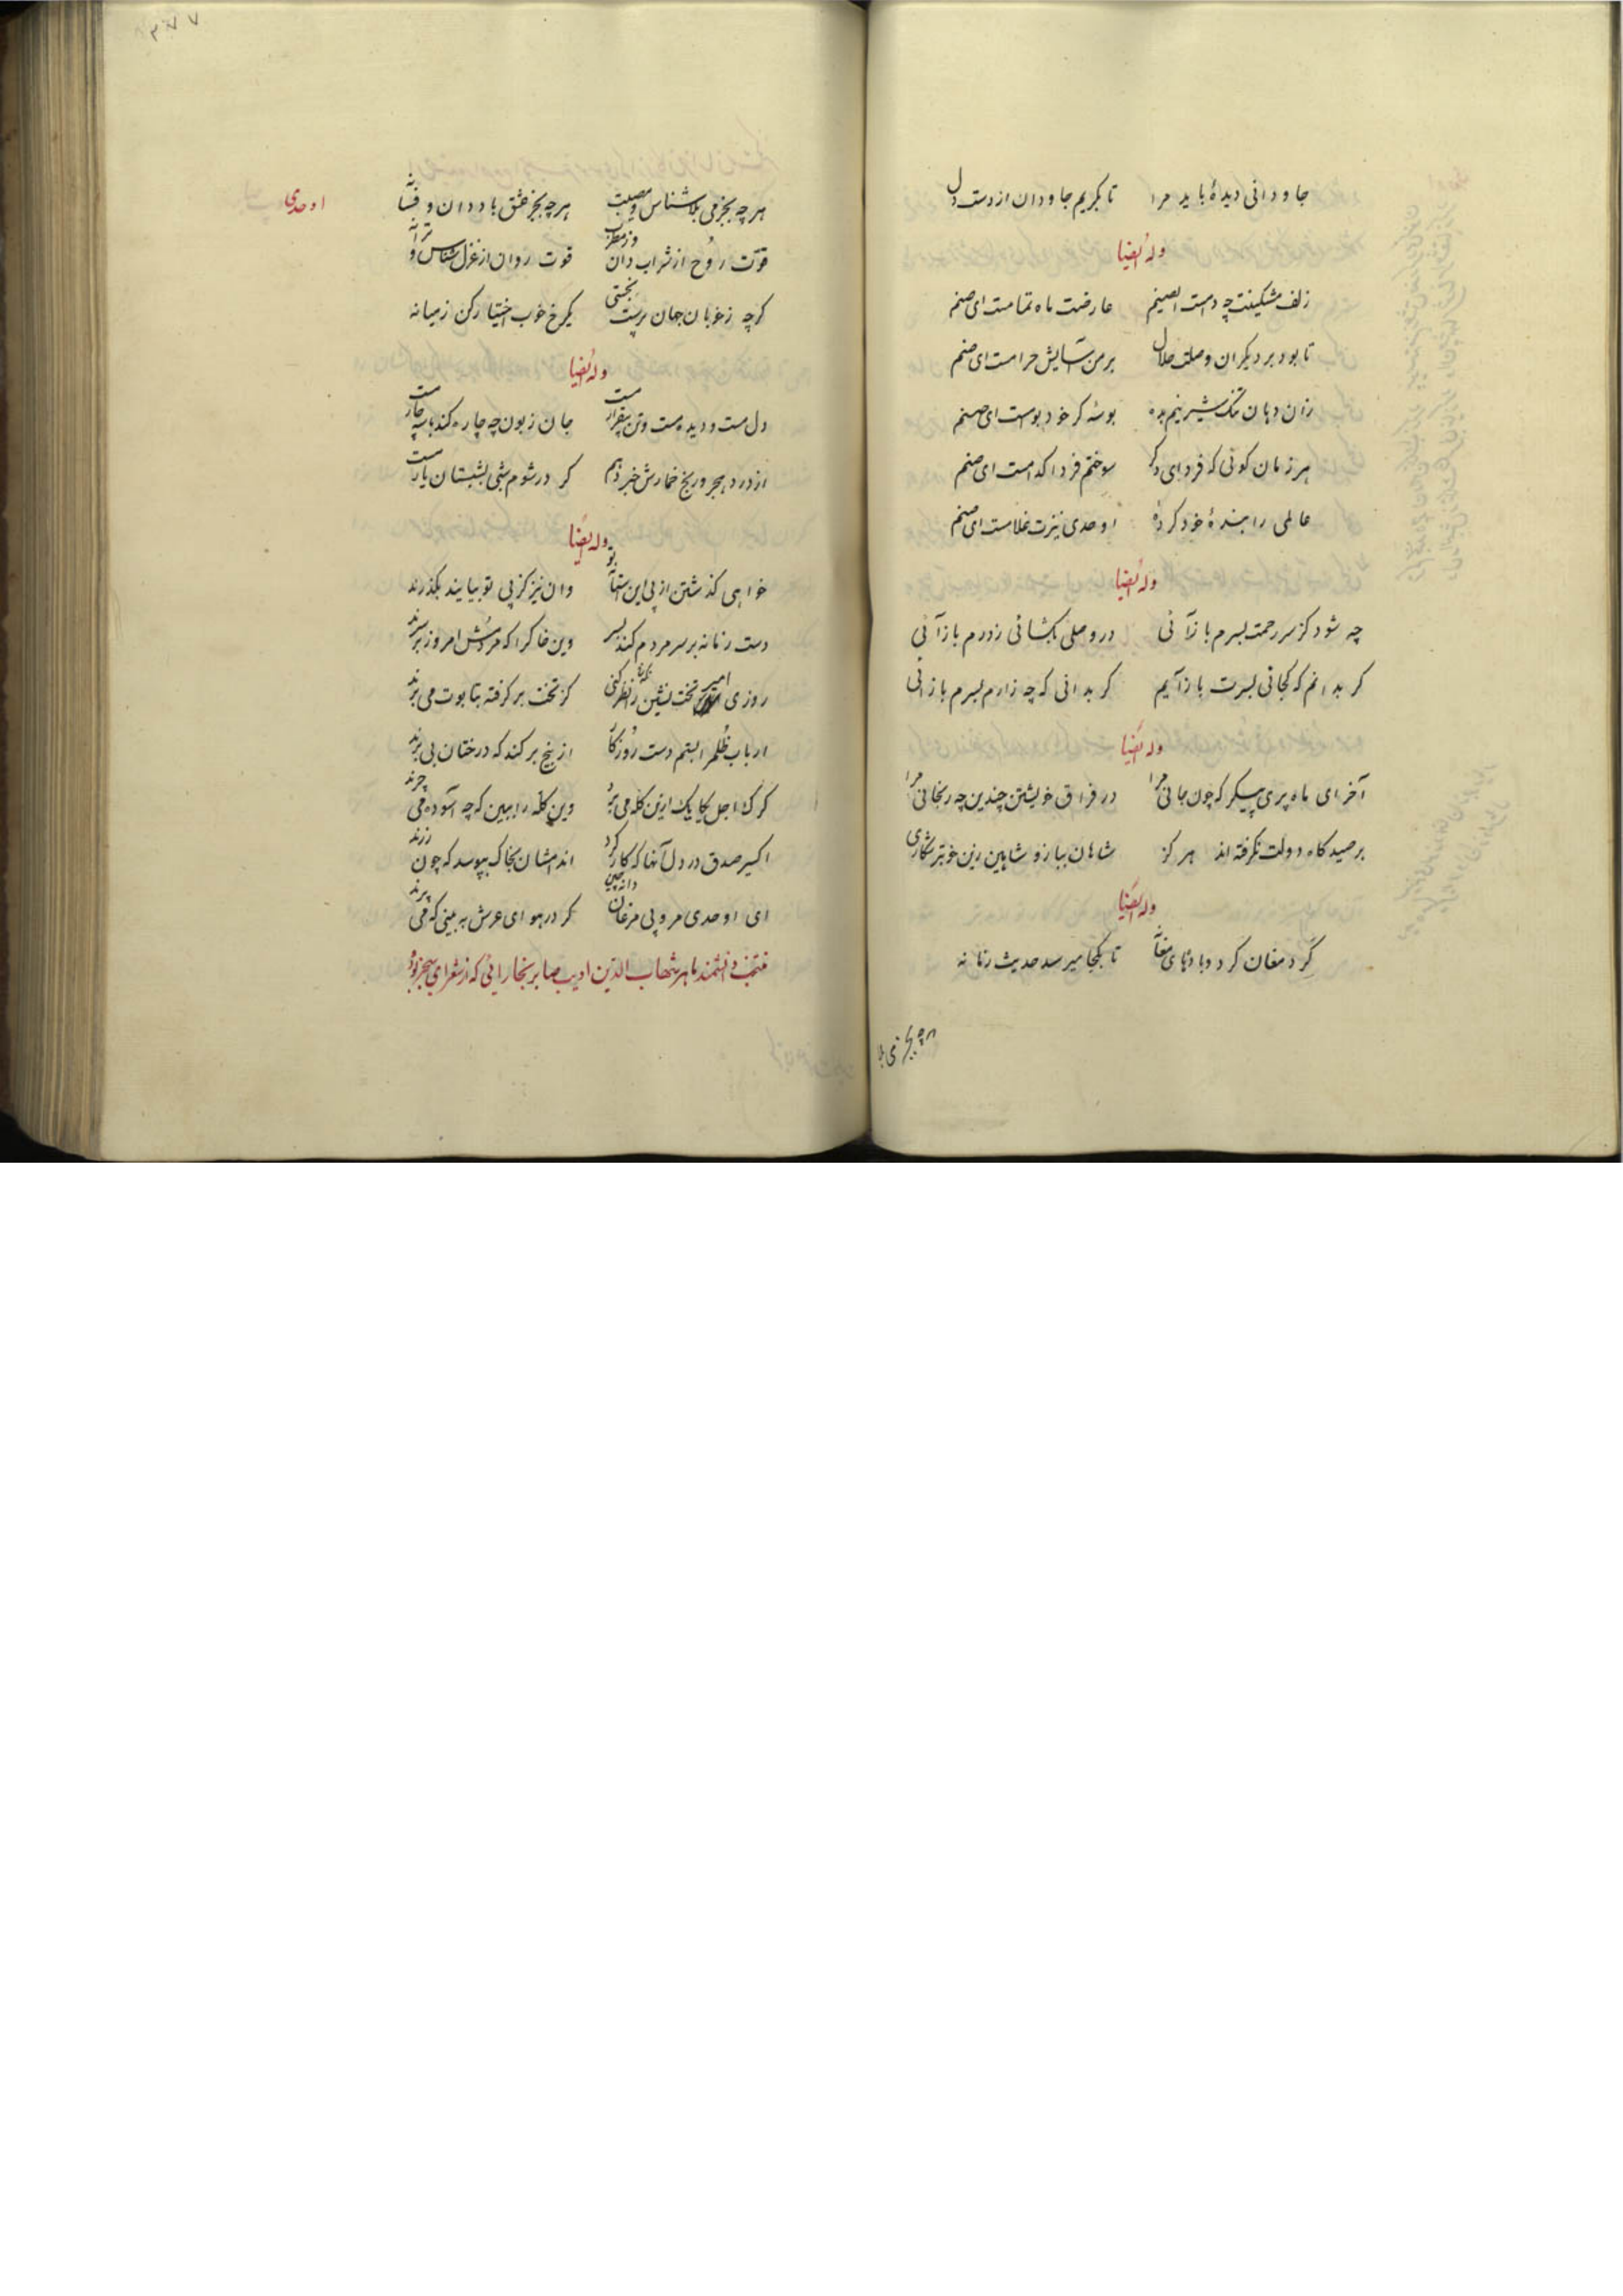 جاودانی دیدهٔ باید مرا تا بکریم جاودان از دست دل
وله ایضا
زلف مشکینت چه دامست ای صنم عارضت ماه تمامست ای صنم
تا بود بر دیکران وصلت حلال بر من آسایش حرامست ای صنم
زان دهان تنک شیرینم بده بوسهٔ کر خود بوست ای صنم
هر زمان کوئی که فردای دکر سوختم فردا کدامست ای صنم
عالمی را بندهٔ خود کردهٔ اوحدی نیزت غلامست ای صنم
وله ایضا
چه شود کز سر رحمت بسرم باز آئی در وصلی بکشائی ز درم باز آئی
کر بدانم که کجائی بسرت باز آیم کر بدانی که چه زارم بسرم باز آئی
وله ایضا
آخر ای ماه پری پیکر که چون جانی مرا در فراق خویشتن چندین چه رنجانی مرا
بر صیدکاه دولت نکرفته اند هرکز شاهان ببازو شاهین زین خوبتر شکاری
وله ایضا
کرد مغان کرد و بادهای مغانه تا بکجا میرسد حدیث زمانه
هر چه بجز می بلا
۳۷۷
اوحدی
هر چه بجز می بلا شناس و مصیبت هر چه بجز عشق باد دان و فسانه
قوت روح از شراب دان و ز مطرب قوت روان از غزل شناس و ترانه
کر چه ز خوبان جهان پرست بختی یکرخ خوب اختیار کن ز میانه
وله ایضا
دل مست و دیده مست و تن بیقرار مست جان زبون چه چاره کند با سه چار مست
از درد هجر و رنج خمارش خبر دهم کر در شوم شبی بشبستان یار مست
وله ایضا
خواهی کذشتن از پی این آستان تو وان نیز کز پی تو بیایند بکذرند
دست زمانه بر سر مردم کند بسر وین خاک را که مردمش امروز بر سرند
روزی امیر تخت نشین را نظر کنی کز تخت بر کرفته بتابوت می برند
ارباب ظلم را بستم دست روزکار از بیخ بر کند که درختان بی برند
کرک اجل یکایک ازین کله می برد وین کله را ببین که چه آسوده می چرند
اکسیر صدق در دل آنها که کار کرد اندامشان بخاک بپوسد که چون زرند
ای اوحدی مرو پی مرغان دانه چین کر در هوای عرش ببینی که می پرند
منتخب دانشمند ماهر شهاب الدین ادیب صابر بخارائی که از شعرای سنجر بود